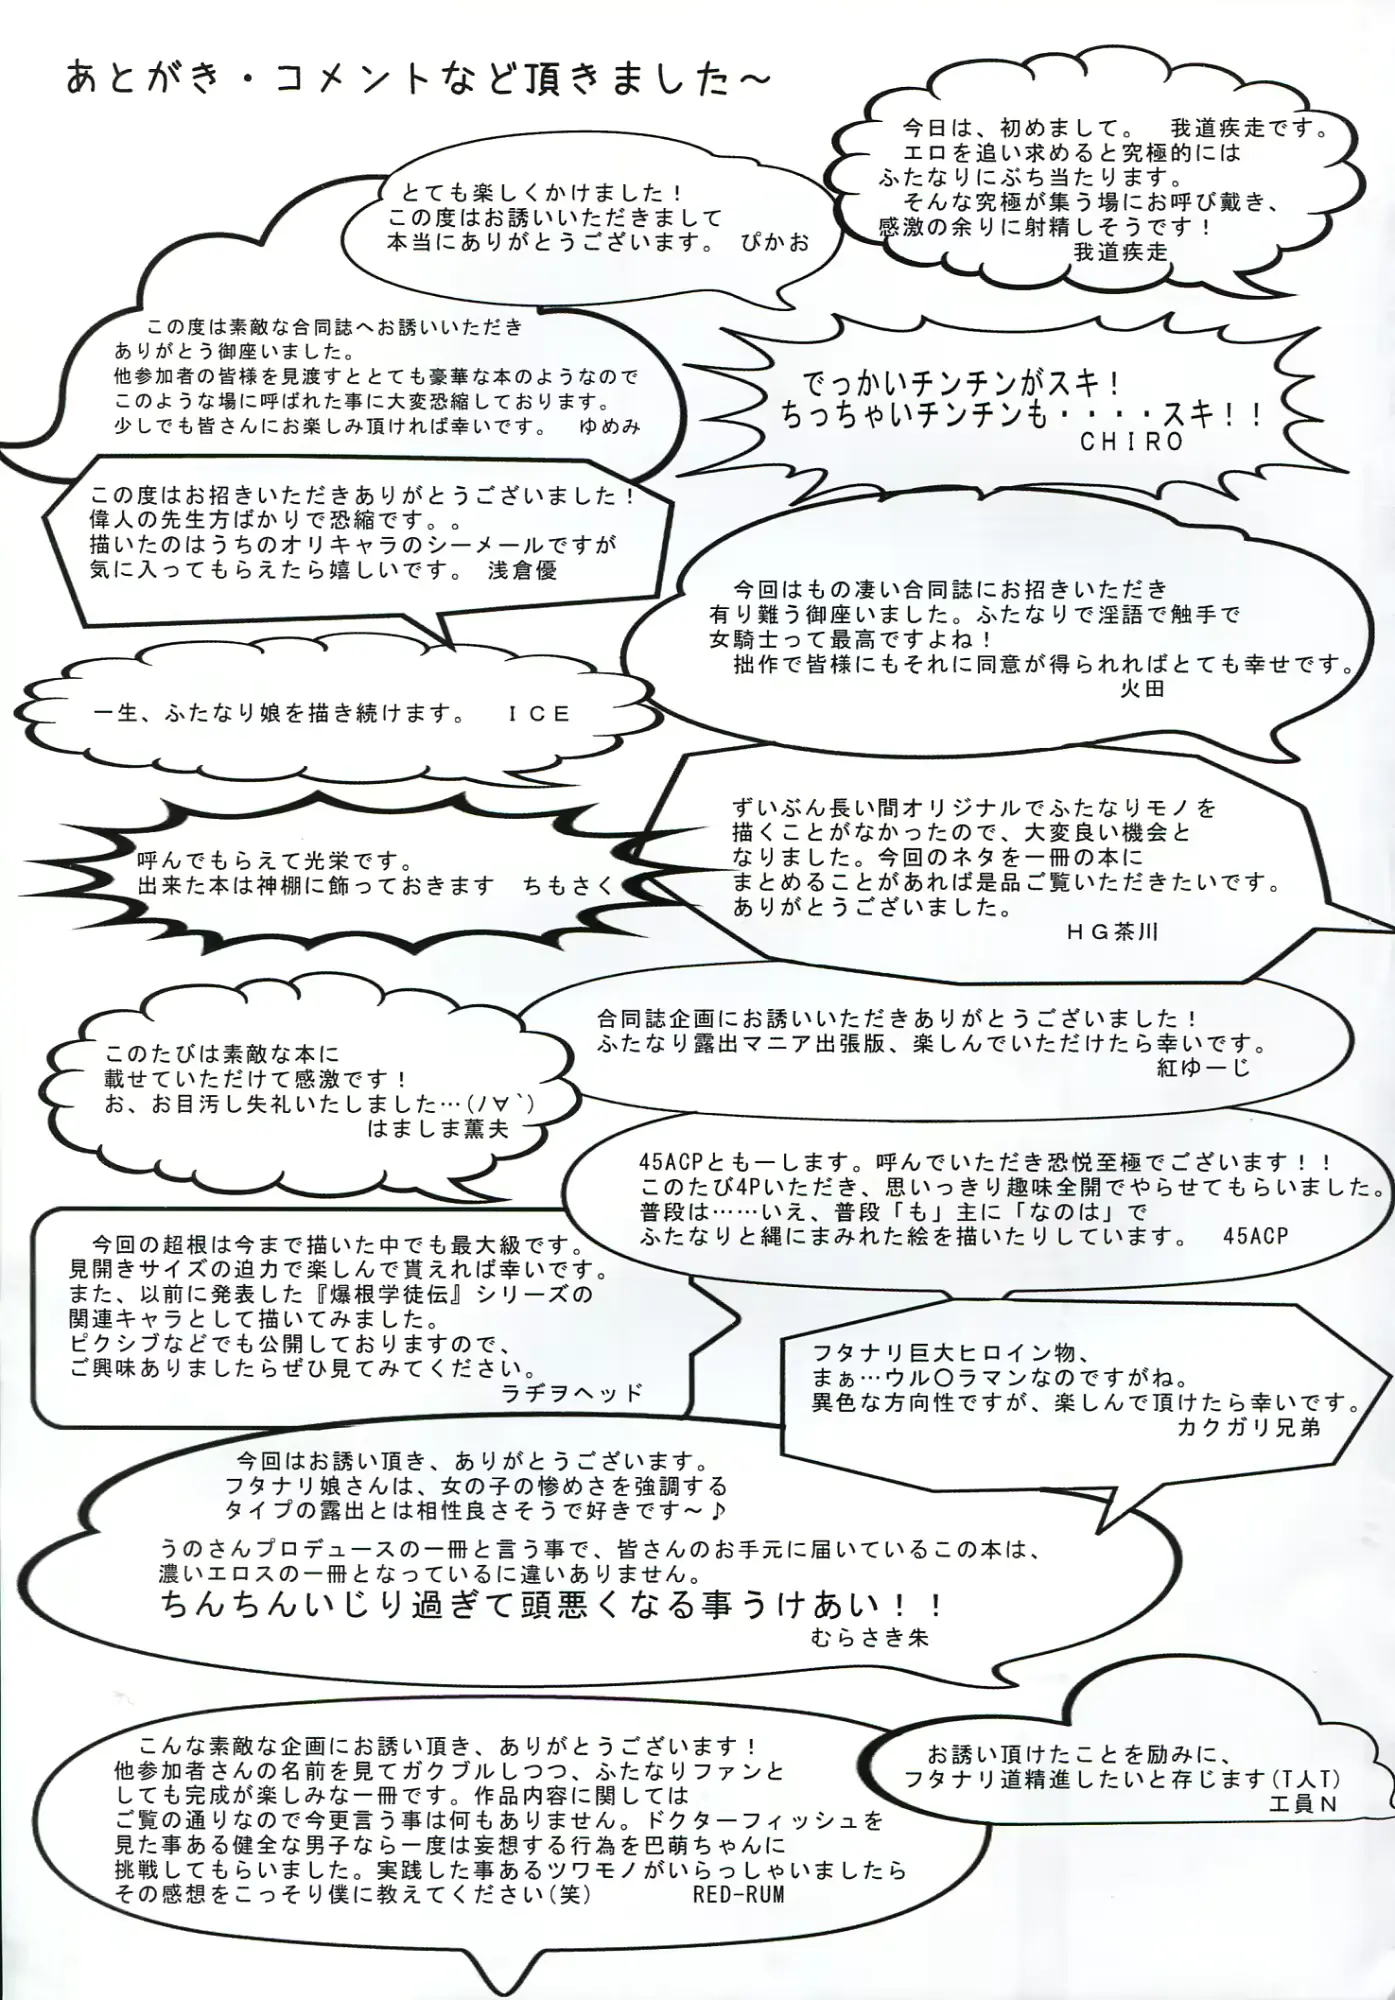 あとがき・コメントなど頂きました～
今日は、初めまして。　我道疾走です。
エロを追い求めると究極的には
ふたなりにぶち当たります。
そんな究極が集う場にお呼び戴き、
感激の余りに射精しそうです！
我道疾走
とても楽しくかけました！
この度はお誘いいただきまして
本当にありがとうございます。　ぴかお
この度は素敵な合同誌へお誘いいただき
ありがとう御座いました。
他参加者の皆様を見渡すととても豪華な本のようなので
このような場に呼ばれた事に大変恐縮しております。
少しでも皆さんにお楽しみ頂ければ幸いです。　ゆめみ
でっかいチンチンがスキ！
ちっちゃいチンチンも・・・・スキ！！
CHIRO
この度はお招きいただきありがとうございました！
偉人の先生方ばかりで恐縮です。。
描いたのはうちのオリキャラのシーメールですが
気に入ってもらえたら嬉しいです。　浅倉優
今回はもの凄い合同誌にお招きいただき
有り難う御座いました。ふたなりで淫語で触手で
女騎士って最高ですよね！
拙作で皆様にもそれに同意が得られればとても幸せです。
火田
一生、ふたなり娘を描き続けます。　ＩＣＥ
ずいぶん長い間オリジナルでふたなりモノを
描くことがなかったので、大変良い機会と
なりました。今回のネタを一冊の本に
まとめることがあれば是品ご覧いただきたいです。
ありがとうございました。
ＨＧ茶川
呼んでもらえて光栄です。
出来た本は神棚に飾っておきます　ちもさく
合同誌企画にお誘いいただきありがとうございました！
ふたなり露出マニア出張版、楽しんでいただけたら幸いです。
紅ゆーじ
このたびは素敵な本に
載せていただけて感激です！
お、お目汚し失礼いたしました…(ﾉ∀`)
はましま薫夫
45ACPともーします。呼んでいただき恐悦至極でございます！！
このたび4Pいただき、思いっきり趣味全開でやらせてもらいました。
普段は……いえ、普段「も」主に「なのは」で
ふたなりと縄にまみれた絵を描いたりしています。　45ACP
今回の超根は今まで描いた中でも最大級です。
見開きサイズの迫力で楽しんで貰えれば幸いです。
また、以前に発表した『爆根学徒伝』シリーズの
関連キャラとして描いてみました。
ピクシブなどでも公開しておりますので、
ご興味ありましたらぜひ見てみてください。
ラヂヲヘッド
フタナリ巨大ヒロイン物、
まぁ…ウル〇ラマンなのですがね。
異色な方向性ですが、楽しんで頂けたら幸いです。
カクガリ兄弟
今回はお誘い頂き、ありがとうございます。
フタナリ娘さんは、女の子の惨めさを強調する
タイプの露出とは相性良さそうで好きです～♪
うのさんプロデュースの一冊と言う事で、皆さんのお手元に届いているこの本は、
濃いエロスの一冊となっているに違いありません。
ちんちんいじり過ぎて頭悪くなる事うけあい！！
むらさき朱
お誘い頂けたことを励みに、
フタナリ道精進したいと存じます(T人T)
工員Ｎ
こんな素敵な企画にお誘い頂き、ありがとうございます！
他参加者さんの名前を見てガクブルしつつ、ふたなりファンと
しても完成が楽しみな一冊です。作品内容に関しては
ご覧の通りなので今更言う事は何もありません。ドクターフィッシュを
見た事ある健全な男子なら一度は妄想する行為を巴萌ちゃんに
挑戦してもらいました。実践した事あるツワモノがいらっしゃいましたら
その感想をこっそり僕に教えてください(笑)　　　RED-RUM